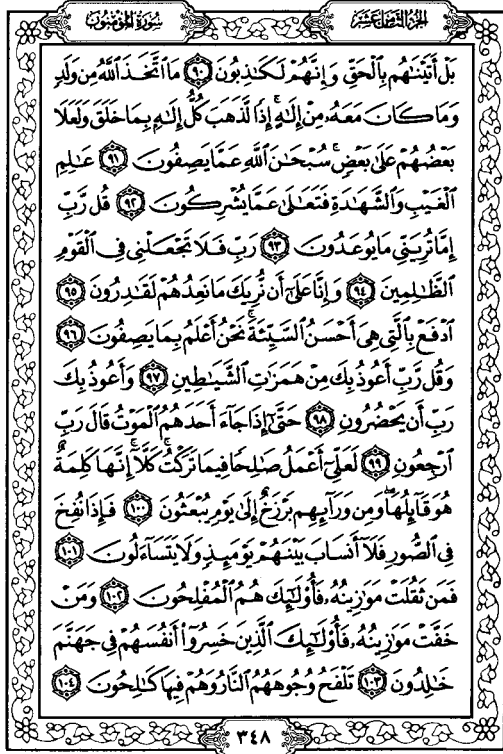 سورة المؤمنون
الجزء الثامن عشر
بَلْ أَتَيْنَٰهُم بِٱلْحَقِّ وَإِنَّهُمْ لَكَٰذِبُونَ ٩٠ مَا ٱتَّخَذَ ٱللَّهُ مِن وَلَدٍ
وَمَا كَانَ مَعَهُۥ مِنْ إِلَٰهٍ ۚ إِذًا لَّذَهَبَ كُلُّ إِلَٰهٍۭ بِمَا خَلَقَ وَلَعَلَا
بَعْضُهُمْ عَلَىٰ بَعْضٍ ۚ سُبْحَٰنَ ٱللَّهِ عَمَّا يَصِفُونَ ٩١ عَٰلِمِ
ٱلْغَيْبِ وَٱلشَّهَٰدَةِ فَتَعَٰلَىٰ عَمَّا يُشْرِكُونَ ٩٢ قُل رَّبِّ
إِمَّا تُرِيَنِّى مَا يُوعَدُونَ ٩٣ رَبِّ فَلَا تَجْعَلْنِى فِى ٱلْقَوْمِ
ٱلظَّٰلِمِينَ ٩٤ وَإِنَّا عَلَىٰٓ أَن نُّرِيَكَ مَا نَعِدُهُمْ لَقَٰدِرُونَ ٩٥
ٱدْفَعْ بِٱلَّتِى هِىَ أَحْسَنُ ٱلسَّيِّئَةَ ۚ نَحْنُ أَعْلَمُ بِمَا يَصِفُونَ ٩٦
وَقُل رَّبِّ أَعُوذُ بِكَ مِنْ هَمَزَٰتِ ٱلشَّيَٰطِينِ ٩٧ وَأَعُوذُ بِكَ
رَبِّ أَن يَحْضُرُونِ ٩٨ حَتَّىٰٓ إِذَا جَآءَ أَحَدَهُمُ ٱلْمَوْتُ قَالَ رَبِّ
ٱرْجِعُونِ ٩٩ لَعَلِّىٓ أَعْمَلُ صَٰلِحًا فِيمَا تَرَكْتُ ۚ كَلَّآ ۚ إِنَّهَا كَلِمَةٌ
هُوَ قَآئِلُهَا ۖ وَمِن وَرَآئِهِم بَرْزَخٌ إِلَىٰ يَوْمِ يُبْعَثُونَ ١٠٠ فَإِذَا نُفِخَ
فِى ٱلصُّورِ فَلَآ أَنسَابَ بَيْنَهُمْ يَوْمَئِذٍ وَلَا يَتَسَآءَلُونَ ١٠١
فَمَن ثَقُلَتْ مَوَٰزِينُهُۥ فَأُو۟لَٰٓئِكَ هُمُ ٱلْمُفْلِحُونَ ١٠٢ وَمَنْ
خَفَّتْ مَوَٰزِينُهُۥ فَأُو۟لَٰٓئِكَ ٱلَّذِينَ خَسِرُوٓا۟ أَنفُسَهُمْ فِى جَهَنَّمَ
خَٰلِدُونَ ١٠٣ تَلْفَحُ وُجُوهَهُمُ ٱلنَّارُ وَهُمْ فِيهَا كَٰلِحُونَ ١٠٤
٣٤٨